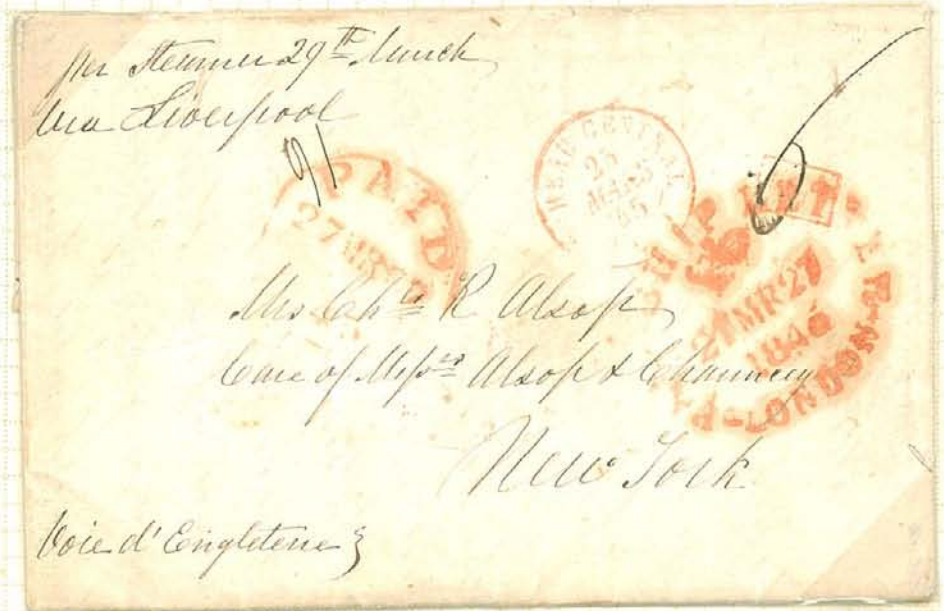 per Steamer 29th March
via Liverpool
91
PAID
27 MR 27
BUREAU CENTRAL
25
MARS
45
6
SHIP LETTER
27 MR 27
1845
LONDON
Mrs Chs R Alsop
Care of Messrs Alsop & Chauncey
New York
Voie d'Engleterre